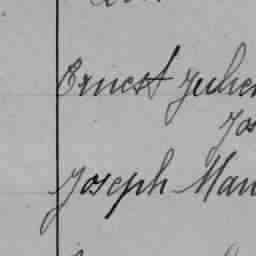 Ernest Julien
Jos
Joseph Mau